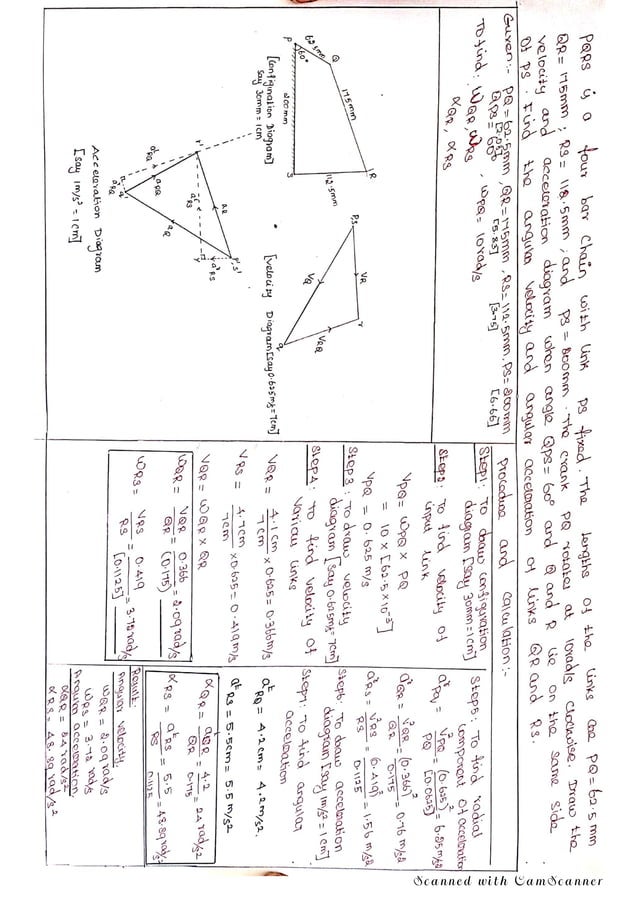 PQRS is a four bar chain with link PS fixed. The lengths of the links are PQ=62.5mm
QR=175mm; RS=112.5mm; and PS=200mm. The crank PQ rotates at 10rad/s clockwise. Draw the
velocity and acceleration diagram when angle QPS=60° and Q and R lie on the same side
of PS. Find the angular velocity and angular acceleration of links QR and RS.
Given:- PQ=62.5mm, QR=175mm, RS=112.5mm, PS=200mm
[2.08] [5.83] [3.75] [6.66]
QPS=60° , WPQ=10rad/s
To find: WQR, WRS
αQR, αRS
Q
62.5mm
175mm
R
60°
P
200mm
S
112.5mm
[Configuration Diagram]
say 30mm=1cm
P,S
VR
r
VQ
VRQ
q
[Velocity Diagram[say 0.625m/s=7cm]
P',S'
aR
r'
aQ
Acceleration Diagram
[say 1m/s²=1cm]
Procedure and Calculation:-
Step1: To draw configuration
diagram [say 30mm=1cm]
Step2: To find velocity of
input link
VPQ = WPQ × PQ
= 10×[62.5×10⁻³]
VPQ = 0.625 m/s
Step3: To draw velocity
diagram [say 0.625m/s=7cm]
Step4: To find velocity of
various links
VQR = 4.1cm/7cm × 0.625 = 0.366m/s
VRS = 4.7cm/7cm × 0.625 = 0.419m/s
VQR = WQR × QR
WQR = VQR/QR = 0.366/(0.175) = 2.09rad/s
WRS = VRS/RS = 0.419/[0.1125] = 3.72rad/s
Step5: To find radial
component of acceleration
aʳPQ = V²PQ/PQ = (0.625)²/[0.0625] = 6.25m/s²
aʳQR = V²QR/QR = (0.366)²/0.175 = 0.76 m/s²
aʳRS = V²RS/RS = (0.419)²/0.1125 = 1.56 m/s²
Step6: To draw acceleration
diagram [say 1m/s²=1cm]
Step7: To find angular
acceleration
aᵗRQ = 4.2cm = 4.2m/s².
aᵗRS = 5.5cm = 5.5m/s²
αQR = aᵗQR/QR = 4.2/0.175 = 24rad/s²
αRS = aᵗRS/RS = 5.5/0.1125 = 48.89rad/s²
Result:
Angular velocity
WQR = 2.09rad/s
WRS = 3.72 rad/s
Angular acceleration
αQR = 24rad/s²
αRS = 48.89rad/s²
Scanned with CamScanner